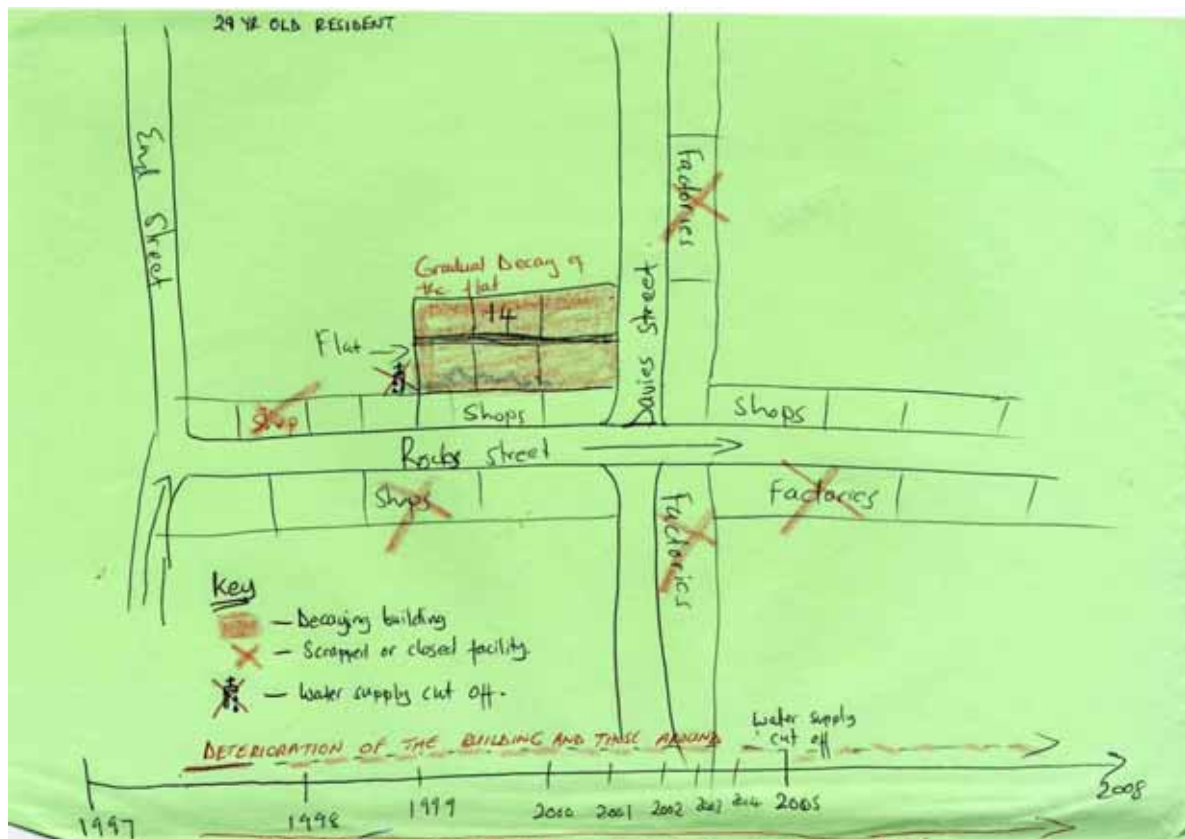 29 YR OLD RESIDENT
End Street
Factories
Gradual Decay of
the flat
14
Flat
Davies Street.
Shop
Shops
Shops
Street
Shops
Factories
Factories
Key
— Decaying building
— Scrapped or closed facility.
— Water supply cut off.
Water supply
cut off
DETERIORATION OF THE BUILDING AND THOSE AROUND
1997
1998
1999
2000
2001
2002
2003
2004
2005
2008